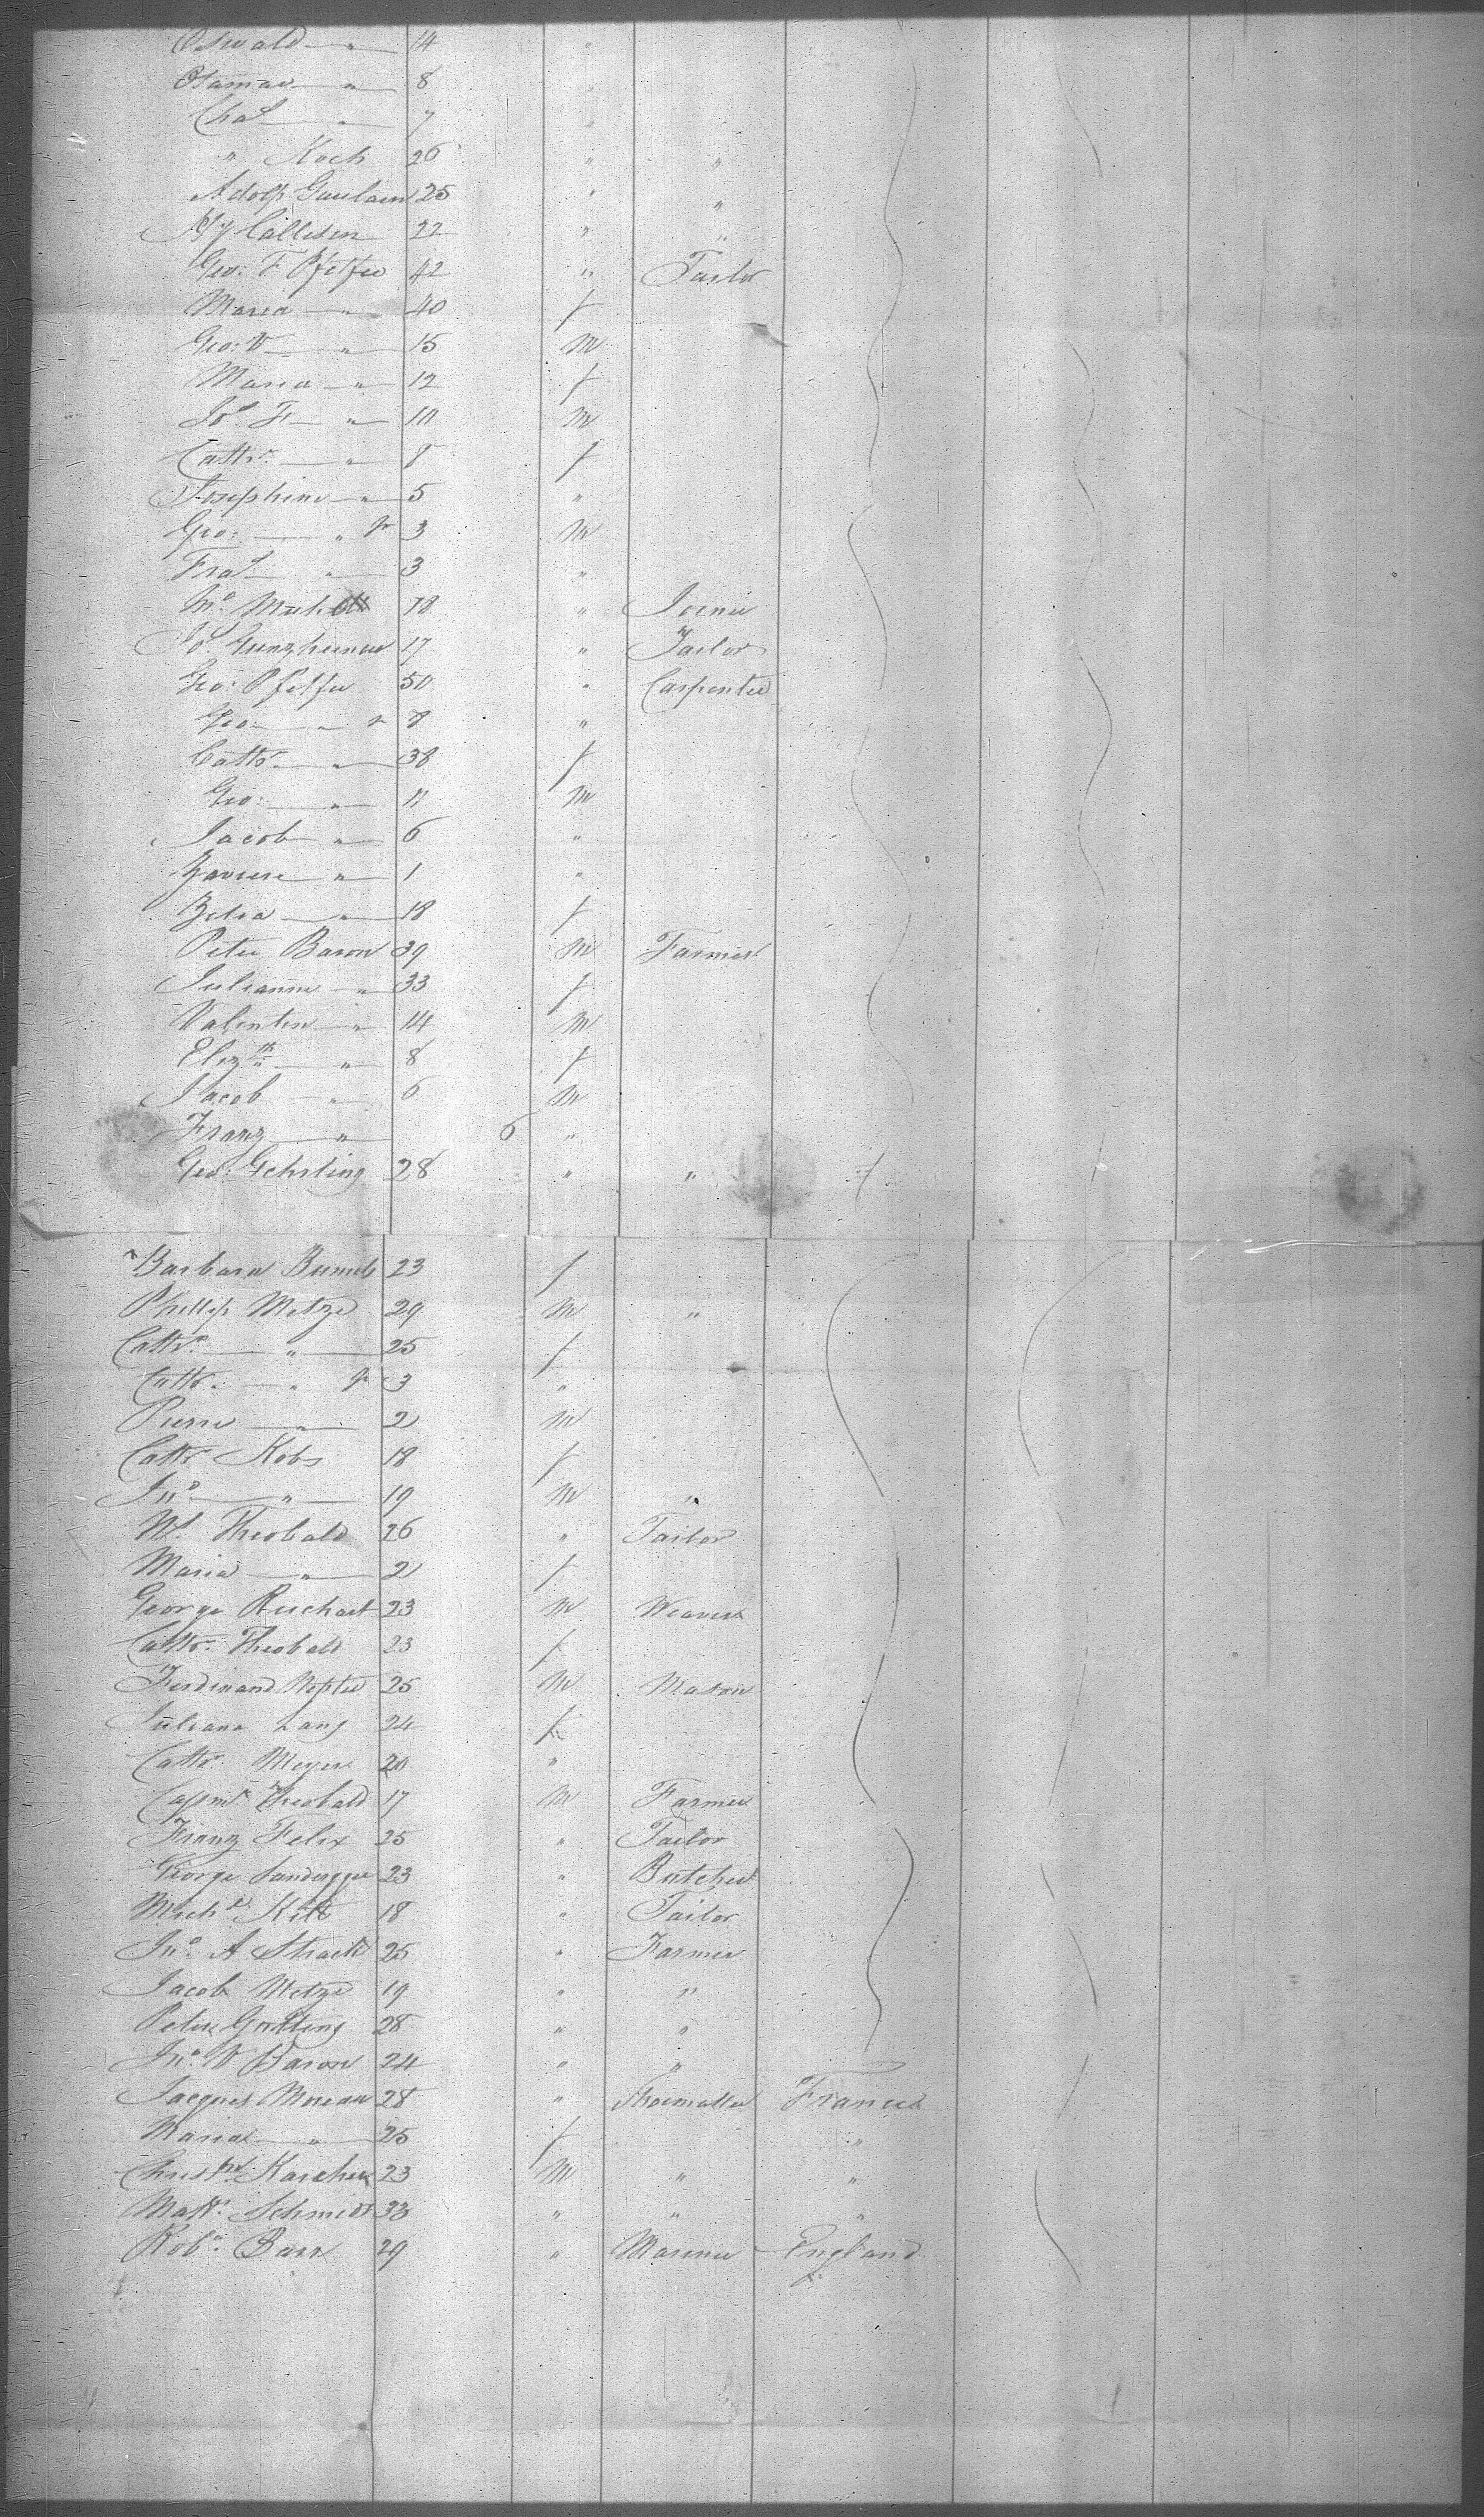 Oswald " 14 "
Osamar " 8
Chas " 7 "
" Koch 26 " "
Adolf Gaulain 25 " "
Hy Callesen 22 " "
Geo: F. Pfeifer 42 " Tailor
Maria " 40 f
Geo: V " 15 M
Maria " 12 f
Jos. F " 10 M
Cathr. " 8 f
Josephine " 5 "
Geo: " Jr 3 M
Fras " 3 "
18 " Joiner
Jos. 17 " Tailor
Geo: Pfeifer 50 " Carpenter
Geo: " Jr 8 "
Cathr. " 38 f
Geo: " 11 M
Jacob " 6 "
Xaviere " 1 "
" 18 f
Peter Baron 39 M Farmer
Julianne " 33 f
Valentin " 14 M
Elizth " 8 f
Jacob " 6 M
Franz " 6 "
Geo: Gehrling 28 " "
Barbara 23 f
Phillip Metzr 29 M "
Cathr. " 25 f
Cathr. " Jr 3 "
Pierre " 2 M
Cathr. Kobs 18 f
Jno. " 19 M "
Theobald 26 " Tailor
Maria " 2 f
George Reichart 23 M Weaver
Cathr. Theobald 23 f
Ferdinand 25 M Mason
Juliana Lang 24 f
Cathr. Meyer 20 "
Theobald 17 M Farmer
Franz Felix 25 " Tailor
George 23 " Butcher
Michl. 18 " Tailor
Jno. A 25 " Farmer
Jacob Metzr 19 " "
Peter 28 " "
Jno. V Baron 24 " "
Jacques Moreau 28 " Shoemaker France
Maria " 25 f "
Christn. Karcher 23 M " "
Matts. Schmidt 33 " " "
Robt. Barr 29 " Mariner England